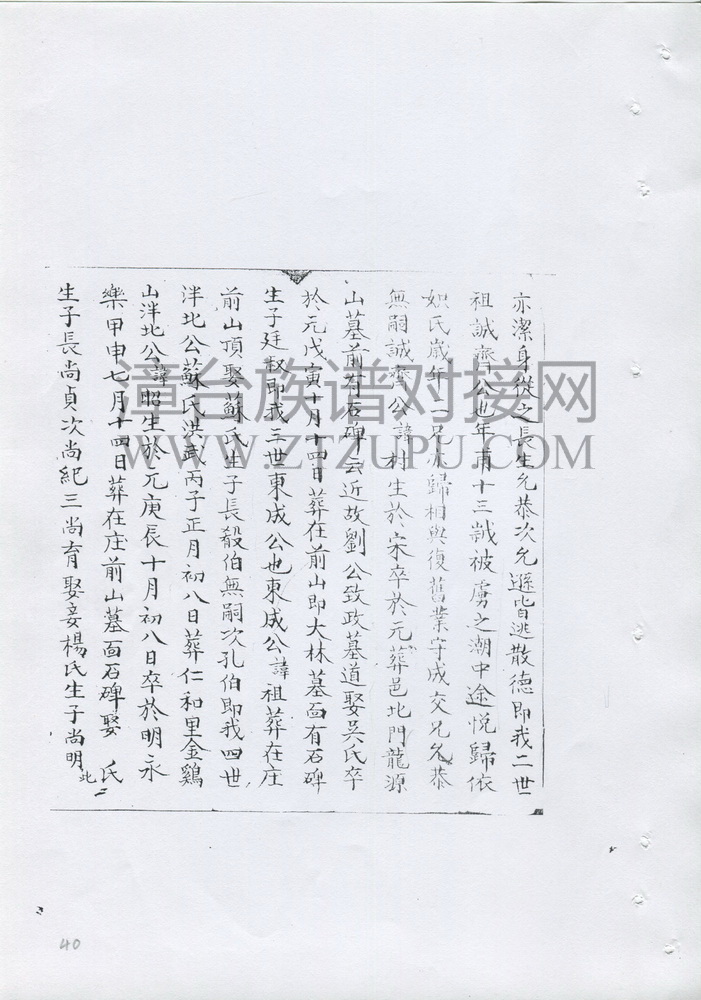 亦潔身從之長生允恭次允遜皆逃散德即我二世
祖誠齊公也年甫十三歲被虜之湖中途悅歸依
氏歲年二兄亦歸相與復舊業守成交兄允恭
無嗣誠齊公諱村生於宋卒於元葬邑北門龍源
山墓前有石碑云近故劉公致政墓道娶吳氏卒
於元戊寅十月十四日葬在前山即大林墓面有石碑
生子廷馭即我三世東成公也東成公諱祖葬在庄
前山頂娶蘇氏生子長殽伯無嗣次孔伯即我四世
泮北公蘇氏洪武丙子正月初八日葬仁和里金鷄
山泮北公諱昭生於元庚辰十月初八日卒於明永
樂甲申七月十四日葬在庄前山墓面石碑娶 氏
生子長尚貞次尚紀三尚育娶妾楊氏生子尚明
北二
漳台族谱对接网
WWW.ZTZUPU.COM
40